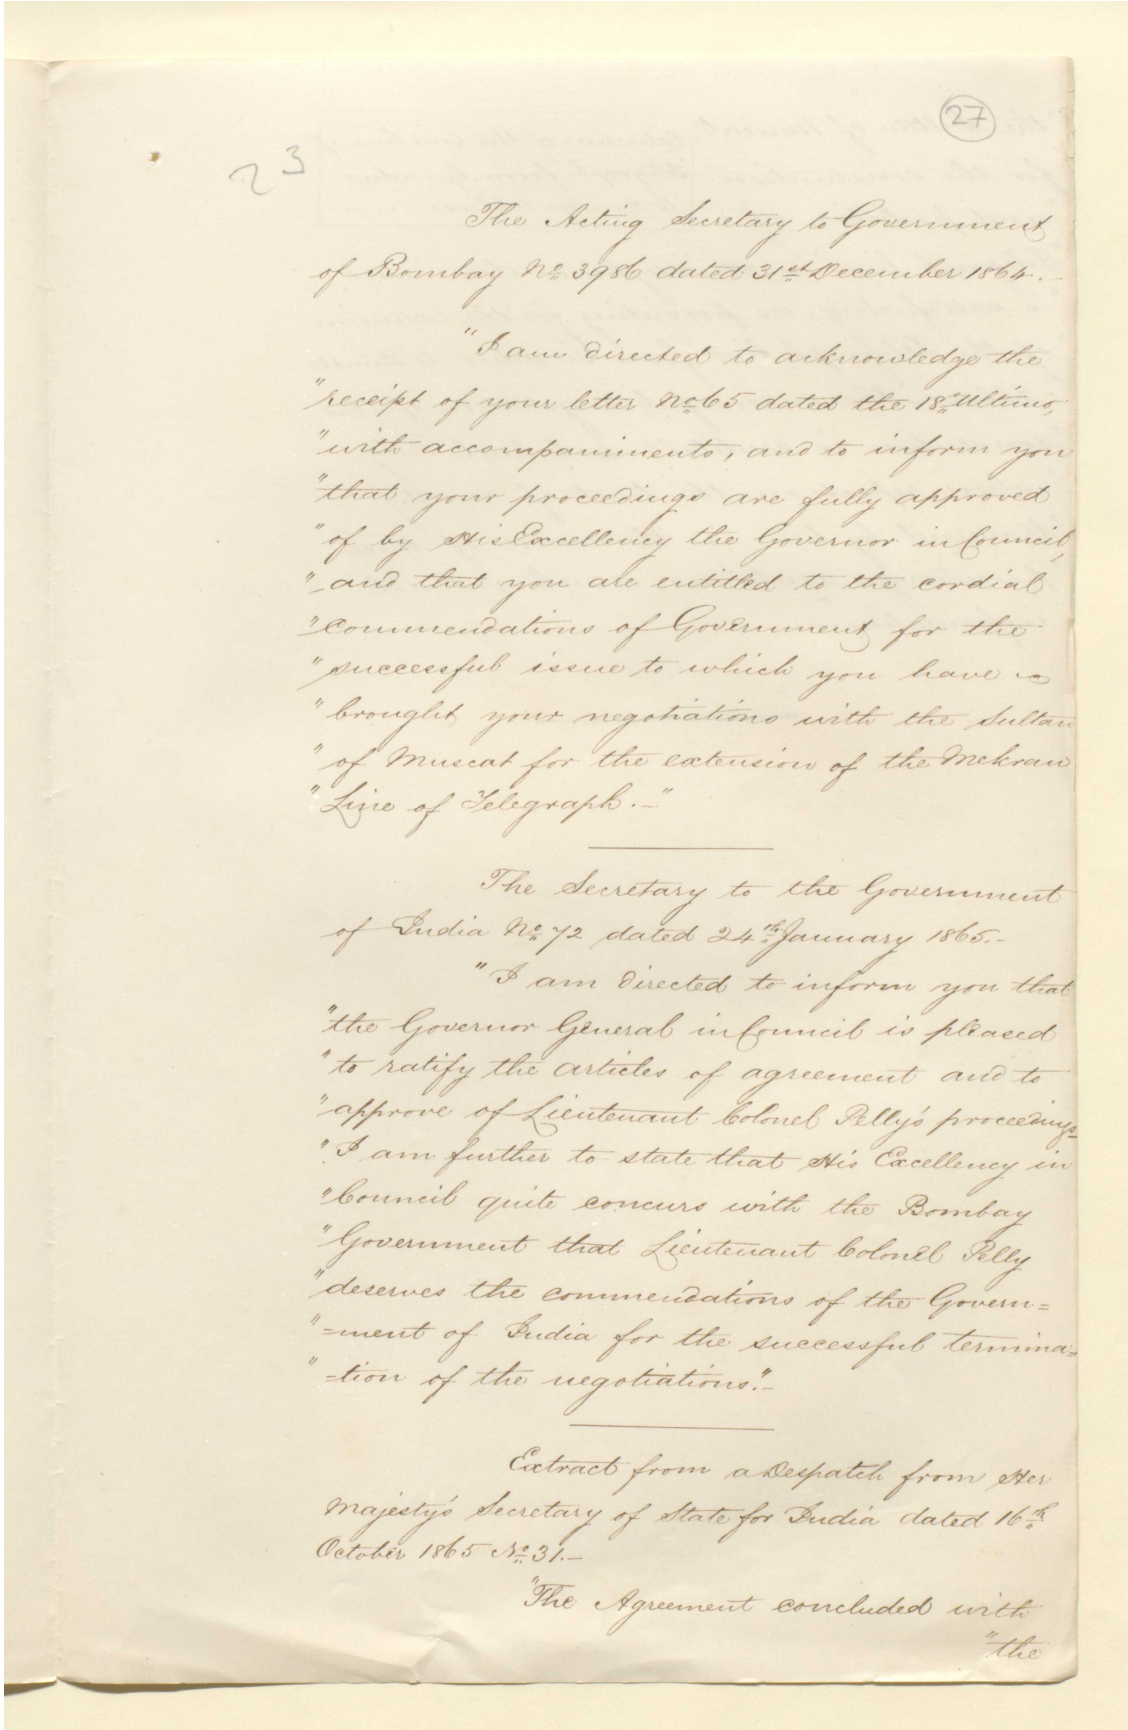 27
23
The Acting Secretary to Government
of Bombay No. 3986 dated 31st December 1864.-
"I am directed to acknowledge the
"receipt of your letter No 65 dated the 18th Ultimo,
"with accompaniments, and to inform you
"that your proceedings are fully approved
"of by His Excellency the Governor in Council,
"and that you are entitled to the cordial
"commendations of Government for the
"successful issue to which you have
"brought your negotiations with the Sultan
"of Muscat for the extension of the Mekran
"Line of Telegraph.-"
The Secretary to the Government
of India No. 72 dated 24th January 1865.-
"I am directed to inform you that
"the Governor General in Council is pleased
"to ratify the articles of agreement and to
"approve of Lieutenant Colonel Pelly's proceedings-
"I am further to state that His Excellency in
"Council quite concurs with the Bombay
"Government that Lieutenant Colonel Pelly
"deserves the commendations of the Govern=
"=ment of India for the successful termina=
"=tion of the negotiations."-
Extract from a Despatch from Her
Majesty's Secretary of State for India dated 16th
October 1865 No. 31.-
"The Agreement concluded with
"the